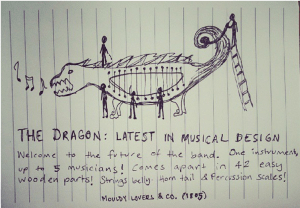 THE DRAGON: LATEST IN MUSICAL DESIGN
Welcome to the future of the band. One instrument,
up to 5 musicians! Comes apart in 42 easy
wooden parts! Strings belly Horn tail & Percission Scales!
MOULDY LOVERS & CO. (1885)